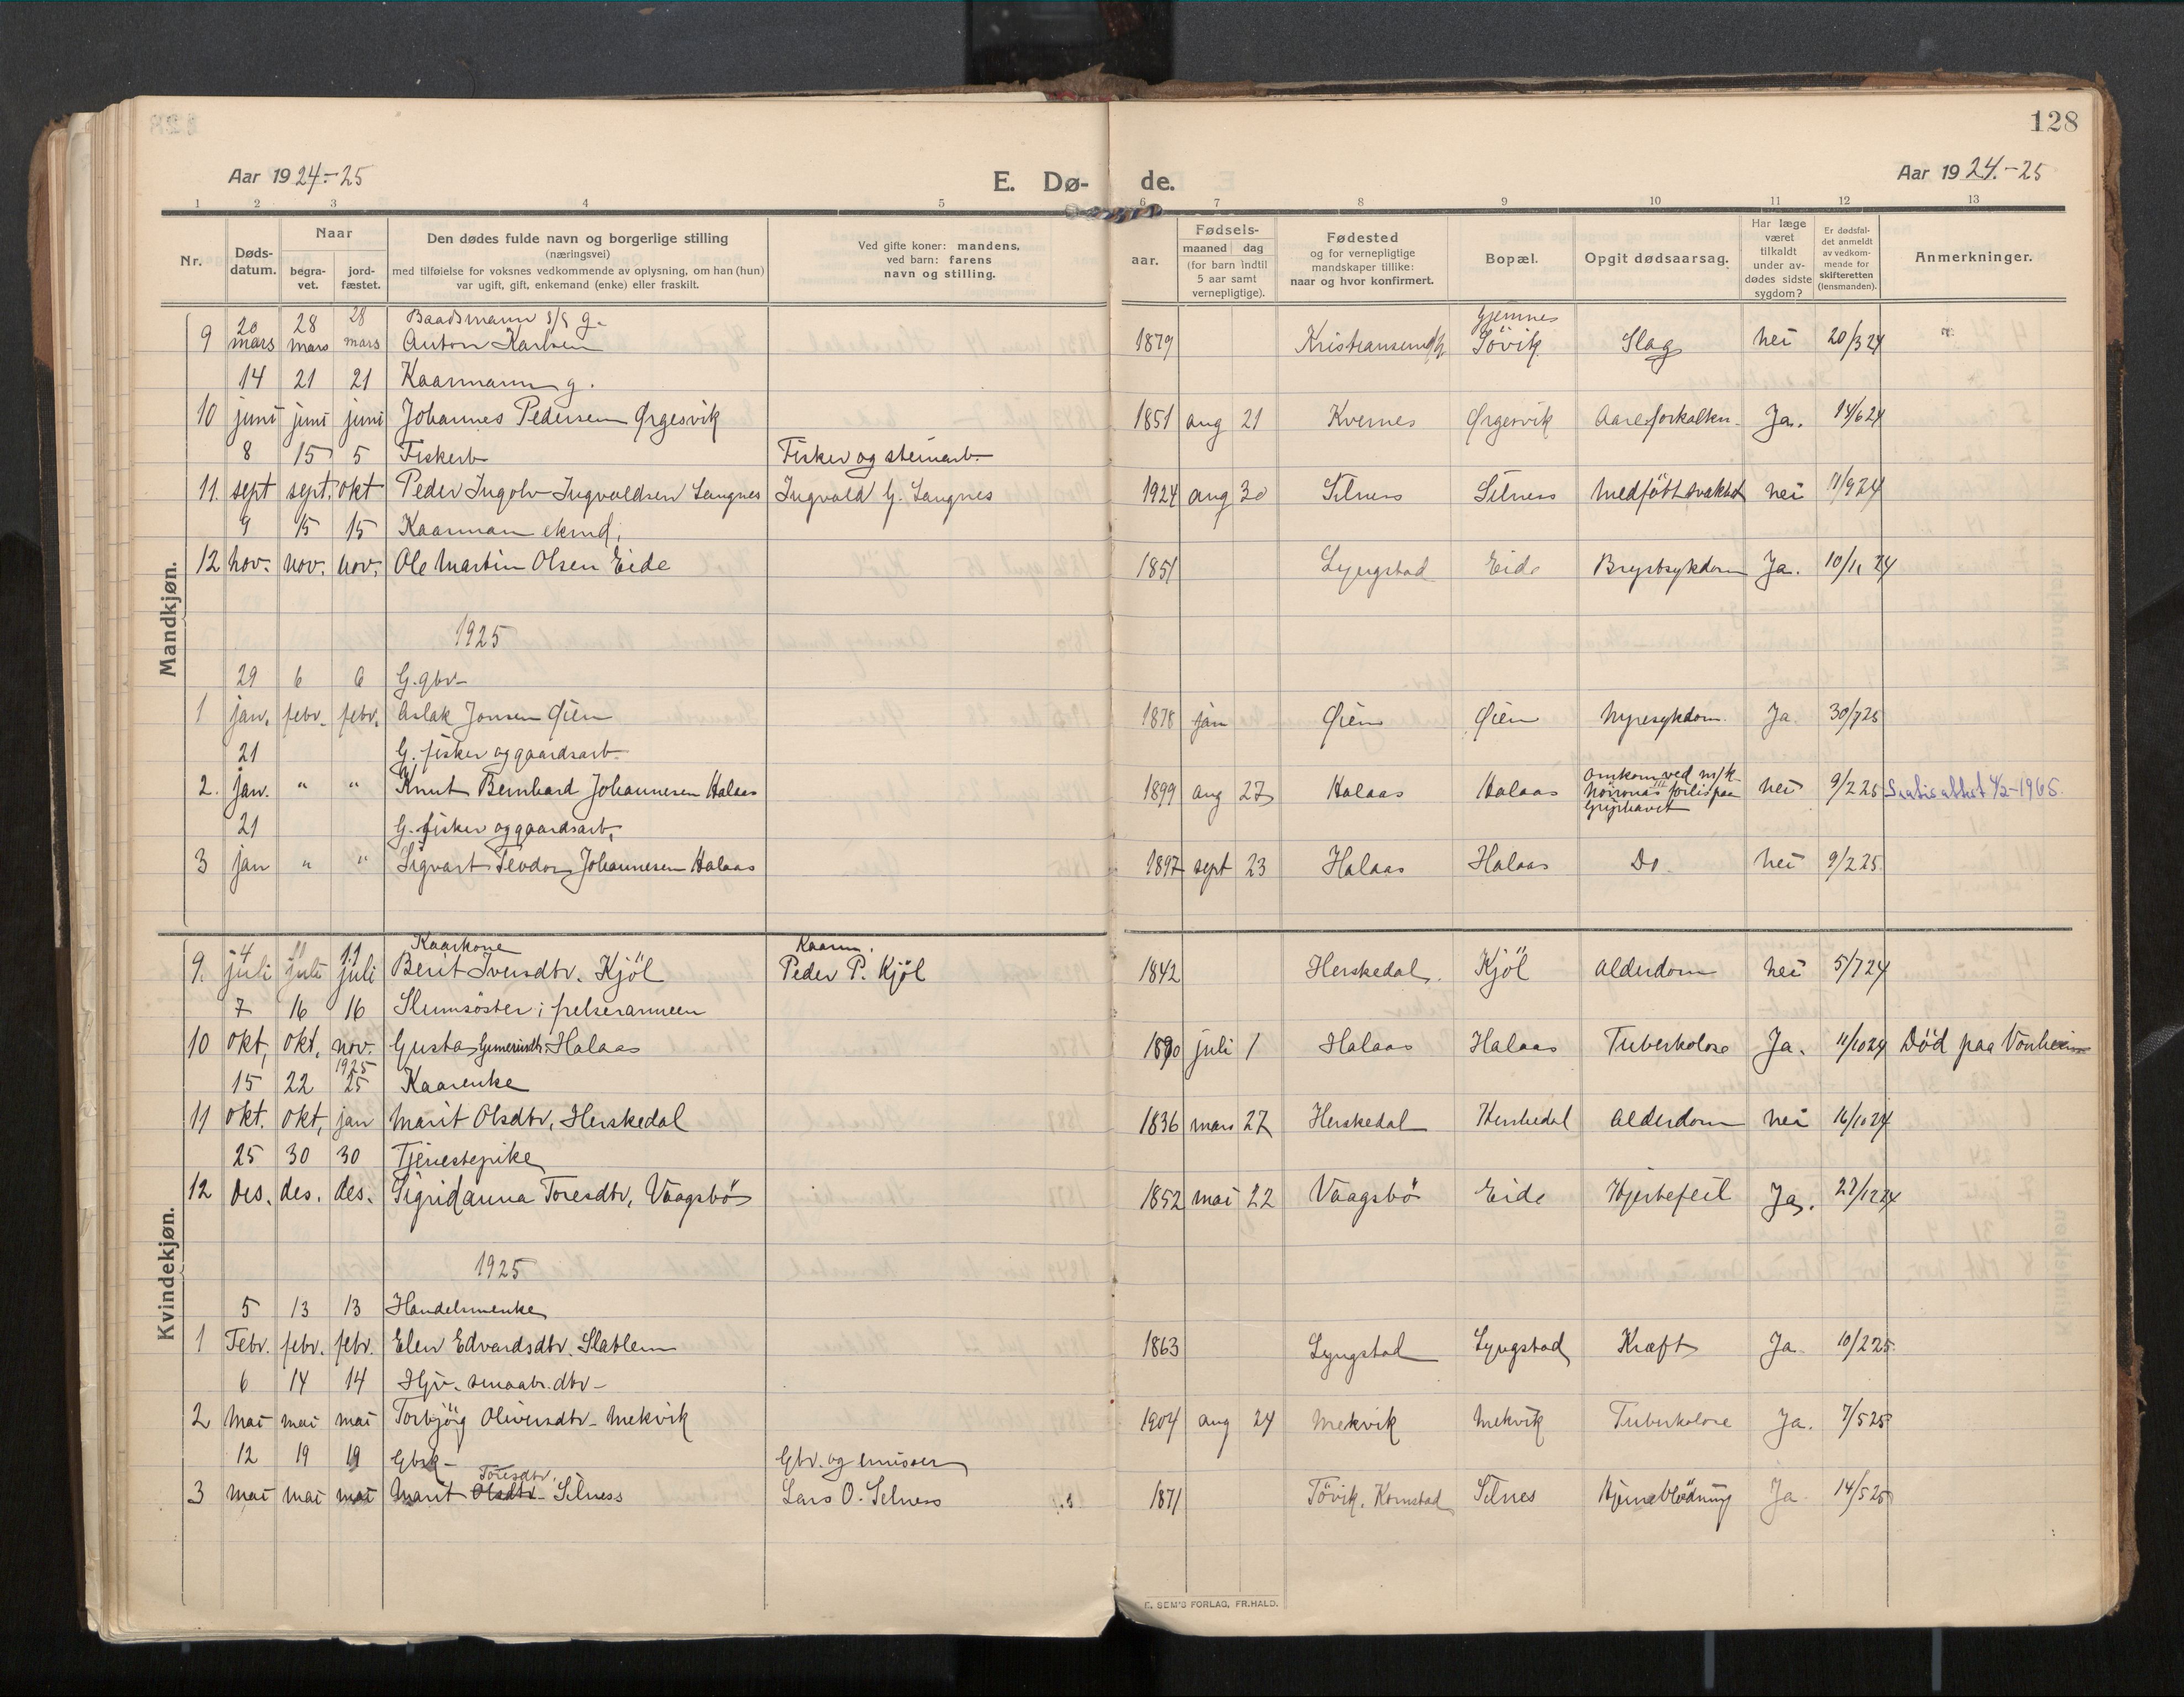 128
Aar 1924-25
E. Dø- de.
Aar 1924.-25
1 2 3 4 5 6 7 8 9 10 11 12 13
Nr.
Døds-
datum.
Naar
begra-
vet.
jord-
fæstet.
Den dødes fulde navn og borgerlige stilling
(næringsvei)
med tilføielse for voksnes vedkommende av oplysning, om han (hun)
var ugift, gift, enkemand (enke) eller fraskilt.
Ved gifte koner: mandens,
ved barn: farens
navn og stilling.
aar.
Fødsels-
maaned dag
(for barn indtil
5 aar samt
vernepligtige).
Fødested
og for vernepligtige
mandskaper tillike:
naar og hvor konfirmert.
Bopæl.
Opgit dødsaarsag.
Har læge
været
tilkaldt
under av-
dødes sidste
sygdom?
Er dødsfal-
det anmeldt
av vedkom-
mende for
skifteretten
(lensmanden).
Anmerkninger.
Mandkjøn.
20 28 28 Baadsmann s/s g. Gjemnes
9 mars mars mars Anton Karlsen 1879 Kristiansund Sövik Slag nei 20/3 24
14 21 21 Kaarmann g.
10 juni juni juni Johannes Pedersen Ørgesvik 1851 aug 21 Kvernes Ørgesvik Aareforkalkn. Ja. 14/6 24
8 15 5 Fiskerb Fisker og steinarb.
11. sept sept. okt Peder Ingolv Ingvaldsen Langnes Ingvald G. Langnes 1924 aug 30 Silness Silness Medfött svakhet nei 11/9 24
9 15 15 Kaarman ekmd.
12 nov. nov. nov. Ole Martin Olsen Eide 1851 Lyngstad Eide Brystsykdom Ja. 10/11 24
1925
29 6 6 G. gbr.
1 jan. febr. febr. Aslak Jonsen Øien 1878 jan Øien Øien Nyresykdom Ja 30/1 25
21 G. fisker og gaardsarb.
2. jan. " " Knut Bernhard Johannesen Halaas 1899 aug 27 Halaas Halaas Omkom ved m/k Höironas III forlis paa Griphavet nei 9/2 25 1965.
21 G. fisker og gaardsarb.
3 jan " " Sigvart Teodor Johannesen Halaas 1897 sept 23 Halaas Halaas Do. nei 9/2 25.
Kvindekjøn.
4 11 11 Kaarkone Kaarm.
9. juli juli juli Berit Iversdtr. Kjöl Peder P. Kjöl 1842 Herskedal Kjöl Alderdom nei 5/7 24
7 16 16 Slumsöster i frelserarmeen
10 okt. okt. nov. Gusta Gunnerusdtr. Halaas 1890 juli 1 Halaas Halaas Tuberkolose Ja. 11/10 24 Död paa Vonheim
1925
15 22 25 Kaarenke
11 okt. okt. jan Marit Olsdtr. Herskedal 1836 mars 27 Herskedal Herskedal Alderdom nei 16/10 24
25 30 30 Tjenestepike
12 des. des. des. Sigridanna Toresdtr. Vaagsbö 1852 mai 22 Vaagsbö Eide Hjertefeil Ja. 27/12 24
1925
5 13 13 Handelsmenke
1 Febr. febr. febr. Elen Edvardsdtr. Slatlem 1863 Lyngstad Lyngstad Kræft Ja 10/2 25.
6 14 14 Hjv. smaabr. dtr.
2 mai mai mai Torbjörg Oliversdtr. Mekvik 1904 aug 24 Mekvik Mekvik Tuberkolose Ja. 7/5 25
12 19 19 Gbrk. Gbr. og emissær
3 mai mai mai Marit Olsdtr. Toresdtr. Silness Lars O. Silness 1871 Tövik, Kornstad Silnes Hjerneblödning Ja 14/5 25
E. SEM'S FORLAG, FR.HALD.